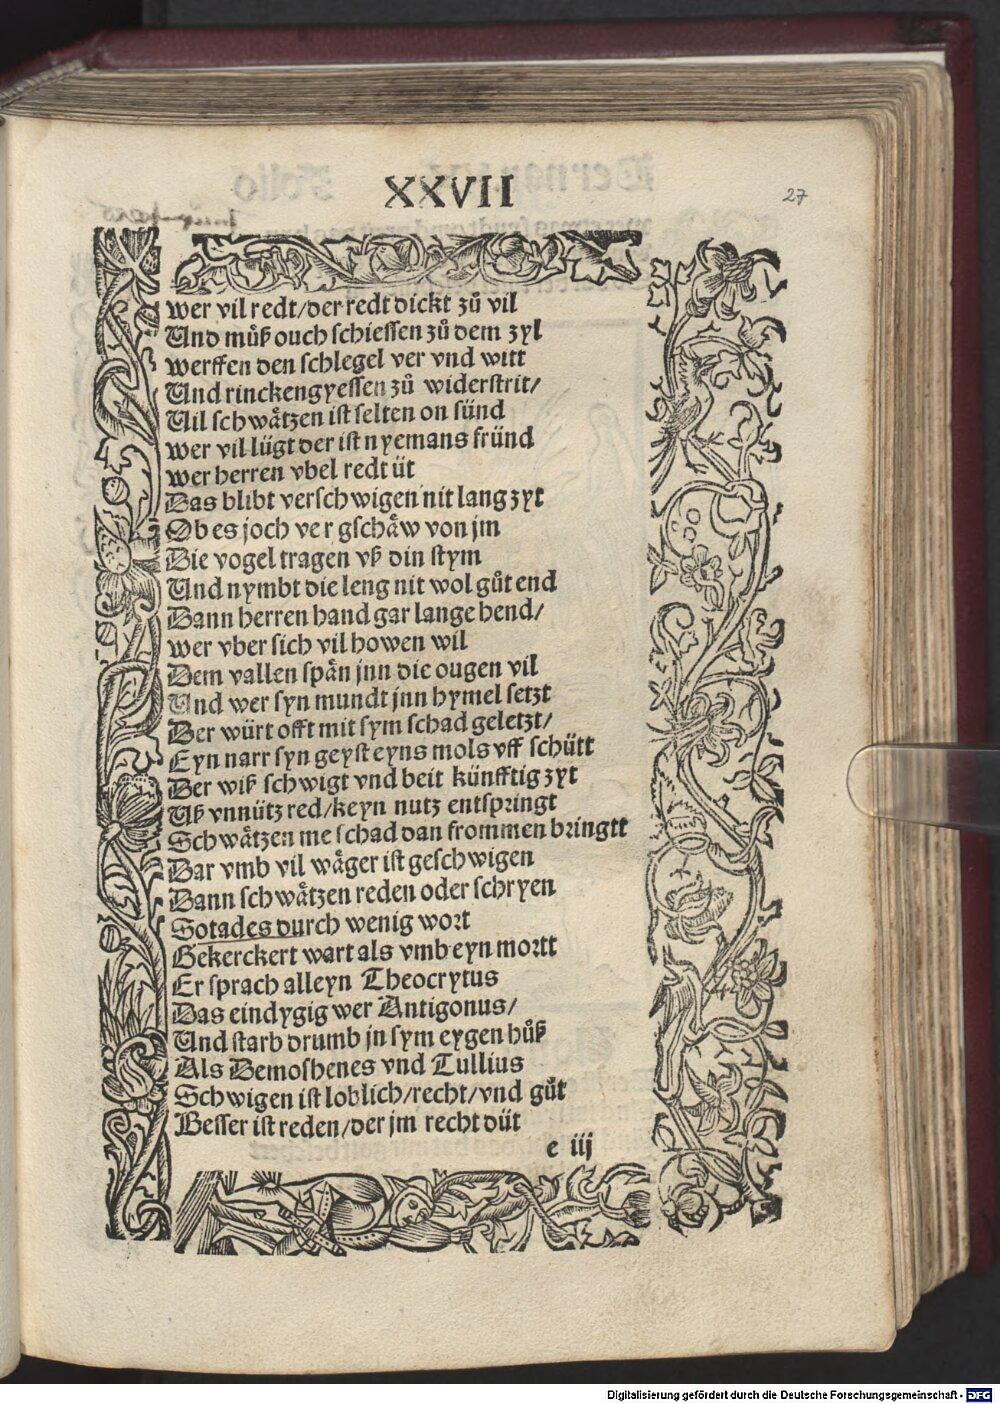 XXVII
27
wer vil redt/der redt dickt zuͦ vil
Und muͤß ouch schiessen zuͦ dem zyl
werffen den schlegel ver vnd witt
Und rinckengyessen zuͦ widerstrit/
Uil schwaͤtzen ist selten on sünd
wer vil lügt der ist nyemans fründ
wer herren vbel redt üt
Das blibt verschwigen nit lang zyt
Ob es joch ver gschaͤw von jm
Die vogel tragen vß din stym
Und nymbt die leng nit wol guͦt end
Dann herren hand gar lange hend/
wer vber sich vil howen wil
Dem vallen spaͤn jnn die ougen vil
Und wer syn mundt jnn hymel setzt
Der würt offt mit sym schad geletzt/
Eyn narr syn geyst eyns mols vff schütt
Der wiß schwigt vnd beit künfftig zyt
Uß vnnütz red/keyn nutz entspringt
Schwaͤtzen me schad dan frommen bringtt
Dar vmb vil waͤger ist geschwigen
Dann schwaͤtzen reden oder schryen
Sotades durch wenig wort
Gekerckert wart als vmb eyn mortt
Er sprach alleyn Theocrytus
Das eindygig wer Antigonus/
Und starb drumb jn sym eygen huͦß
Als Demoshenes vnd Tullius
Schwigen ist loblich/recht/vnd guͦt
Besser ist reden/der jm recht düt
e iij
Digitalisierung gefördert durch die Deutsche Forschungsgemeinschaft - DFG